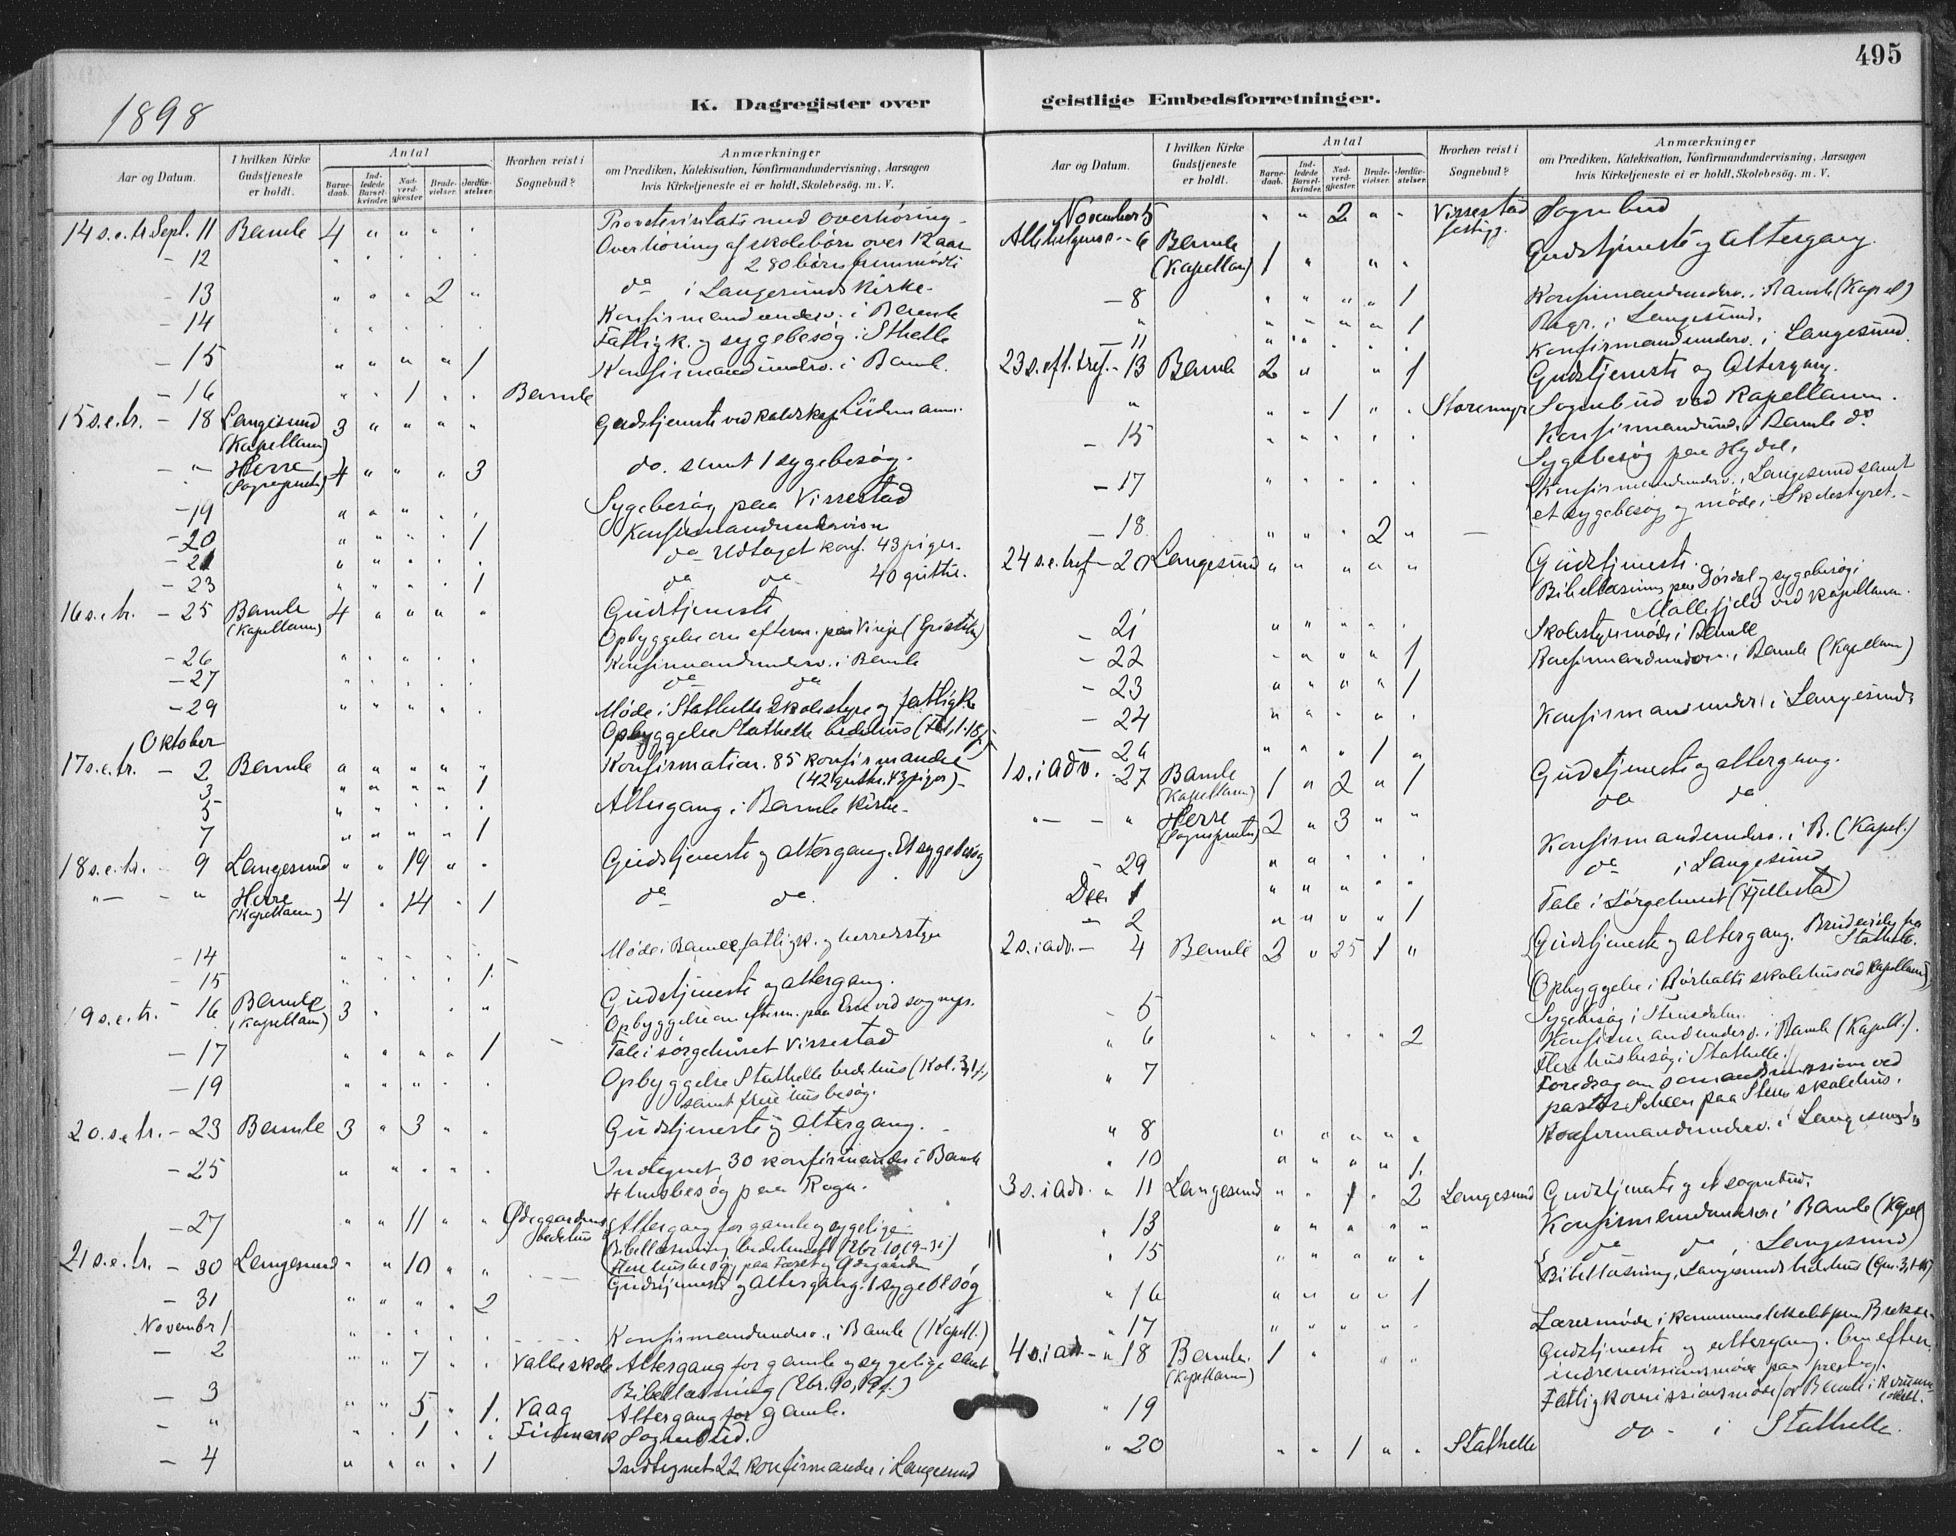 495
1898
K. Dagregister over
geistlige Embedsforretninger.
Aar og Datum.
I hvilken Kirke Gudstjeneste er holdt.
Antal
Barnedaab.
Indledede Barselkvinder.
Nadverdgjester
Brudevielser.
Jordfæstelser.
Hvorhen reist i Sognebud?
Anmærkninger
om Prædiken, Katekisation, Konfirmandundervisning, Aarsagen
hvis Kirketjeneste ei er holdt, Skolebesög. m. V.
14 s.e.tr. Sept. 11 Bamle 4 " " " " Provstevisitats med overhöring
- 12 " " " " " Overhöring af skolebörn over 12 aar
280 börn fremmödte
- 13 " " " 2 " do i Langesunds Kirke.
- 14 " " " " " Konfirmandunderv. i Bamle
Fattigk. og sygebesög i Sthelle
- 15 " " " " 1 Konfirmandunderv. i Bamle.
- 16 " " 1 " " Bamle
15 s.e.tr. - 18 Langesund (Kapellanen) 3 " " " " Gudstjeneste ved
- " - Herre 4 " " " 3 do. samt 1 sygebesög.
- 19 " " " " " Sygebesög paa Vissestad
- 20 " " " " 1 Konfirmandundervisn
- 21 " " " " " do Udtaget konf. 43 piger.
- 23 " " " " 1 do do 40 gutter.
16 s.e.tr. - 25 Bamle (Kapellanen) 4 " " " " Gudstjeneste
Opbyggelse om efterm. paa
- 26 " " " " " Konfirmandunderv. i Bamle
- 27 " " " " " do do
- 29 " " " " " Møde i Stathelle Skolestyre og fattigk
Opbyggelse Stathelle bedehus
Oktober
17 s.e.tr. - 2 Bamle " " " " " Konfirmation. 85 konfirmander
(42 gutter. 43 piger)
3 " " " " 1
5 " " " " " Altergang i Bamle Kirke.
7 " " " " 1
18 s.e.tr. - 9 Langesund " " 19 " " Gudstjeneste og altergang. Et sygebesög
" - " Herre (Kapellanen) 4 " 14 " 1 do do.
- 14 " " " " " Möde i Bamle fattigk. og herredsstyre
- 15 " " " " 1
19 s.e.tr. - 16 Bamle (Kapellan) 3 " " " Gudstjeneste og altergang.
Opbyggelse om efterm. paa ved sognepr.
- 17 " " " " 1 Tale i sörgehuset Vissestad
- 19 " " " " " Opbyggelse Stathelle bedehus (Kol. 3,1f)
samt flere husbesög.
20. s.e.tr. - 23 Bamle 3 " 3 " " Gudstjeneste og altergang.
- 25 " " " " " Indtegnet 30 konfirmander i Bamle
4 husbesög paa
- 27 " " 11 " " Ødegaardens bedehus Altergang for gamle og sygelige
Bibellæsning bedehuset
21 s.e.tr. - 30 Langesund " " 10 " " Gudstjeneste og altergang. 1 sygebesög
- 31 " " " " 2
November 1 " " " " " Konfirmandunderv. i Bamle (Kapell.)
- 2 " " 7 " " Valle skole Altergang for gamle og sygelige samt
Bibellæsning
- 3 " " 5 " 1. Vaag Altergang for gamle.
" " " 1 " " Sognebud.
- 4 " " " " 1 Indtegnet 22 konfirmander i Langesund
Aar og Datum.
I hvilken Kirke Gudstjeneste er holdt.
Antal
Barnedaab.
Indledede Barselkvinder.
Nadverdgjester
Brudevielser.
Jordfæstelser.
Hvorhen reist i Sognebud?
Anmærkninger
om Prædiken, Katekisation, Konfirmandundervisning, Aarsagen
hvis Kirketjeneste ei er holdt, Skolebesög. m. V.
November 5 " " 2 " " Vissestad Sognebud
- 6 Bamle (Kapellan) 1 " " " Gudstjeneste og altergang.
- 8 " " " " 1 Konfirmandunderv. i Bamle (Kapel)
" " " " " 1 i Langesund.
11 " " " " " Konfirmandunderv. i Langesund.
23 s. eft. tref. - 13 Bamle 2 " " 1 Gudstjeneste og Altergang.
" " " 1 " " Storemyr Sognebud ved Kapellanen.
- 15 " " " " " Konfirmandund. i Bamle do
Sygebesög paa
- 17 " " " " " Konfirmandunderv. i Langesund samt
et sygebesög og möde i Skolestyret.
- 18 " " " 2 " -
24 s.e.tref - 20 Langesund " " " " " Gudstjeneste.
Bibellæsning paa Dördal og sygebesög i
ved kapellanen.
- 21 " " " " " Skolestyremöde i Bamle
- 22 " " " " 1 Konfirmandunderv. i Bamle (Kapellanen)
- 23 " " " " 1
- 24 " " " " " Konfirmandunderv. i Langesund.
26 " " " 1 "
1 s. i adv. - 27 Bamle (Kapellanen) 1 " 2 " 1 Gudstjeneste og altergang.
" - - " Herre 2 " 3 " " do do
- 29 " " " " " Konfirmandunderv. i B. (Kapel.)
Dec 1 " " " " " do i Langesund
- 2 " " " " 1 Tale i Sörgehuset (Fjellestad)
2 s. i adv. - 4 Bamle 2 " 25 1 " Gudstjeneste og altergang. Stathelle.
Opbyggelse i skolehus ved Kapellanen
- 5 Sygebesög i
" 6 " " " " 2 Konfirmandunderv. i Bamle (Kapell.).
Flere husbesög i Stathelle.
" 7 Foredrag om ved
pastor paa skolehus.
" 8 " " " " " Konfirmandunderv. i Langesund
" 10 " " " " 1.
3 s. i adv. " 11 Langesund " " 1 " 2 Langesund Gudstjeneste og et sognebud.
" 13 " " " " " Konfirmandunderv. i Bamle (Kapel)
" 15 " " " " " do do i Langesund
Bibellæsning, Langesunds bedehus
" 16 " " " " 1
" 17 " " " " " Lærermöde i
4 s. i adv - " 18 Bamle. (Kapellanen) 1 " " " Gudstjeneste og altergang. Om efterm.
indremissionsmöde paa
" 19 Fattigkomissionsmöde for Bamle i
" 20 " " 1 " " Stathelle do - i Stathelle.